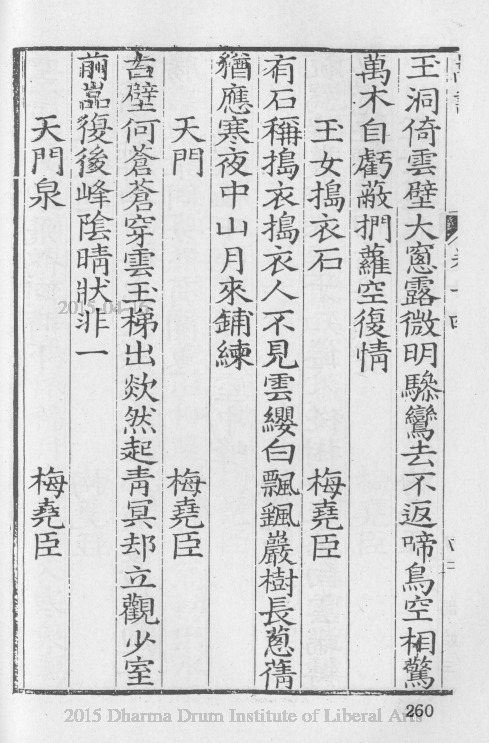 玉洞倚雲壁大窻露微明驂鸞去不返啼鳥空相驚
萬木自虧蔽捫蘿空復情
玉女搗衣石 梅堯臣
有石稱搗衣搗衣人不見雲纓白飄颻巖樹長蔥蒨
猶應寒夜中山月來鋪練
天門 梅堯臣
古壁何蒼蒼穿雲玉梯出欻然起青冥却立觀少室
前嵓復後峰陰晴狀非一
天門泉 梅堯臣
2015-04-16
260
2015 Dharma Drum Institute of Liberal Arts